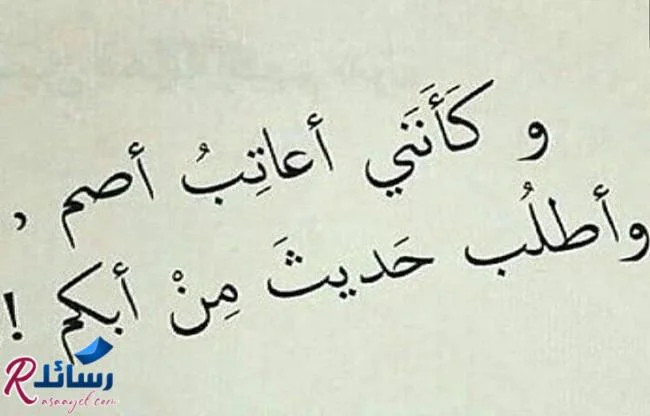 و كَأَنَني أعاتِبُ أصم ,
وأطلُب حَديثَ مِنْ أبكم !
رسائل
Rasaayel.com